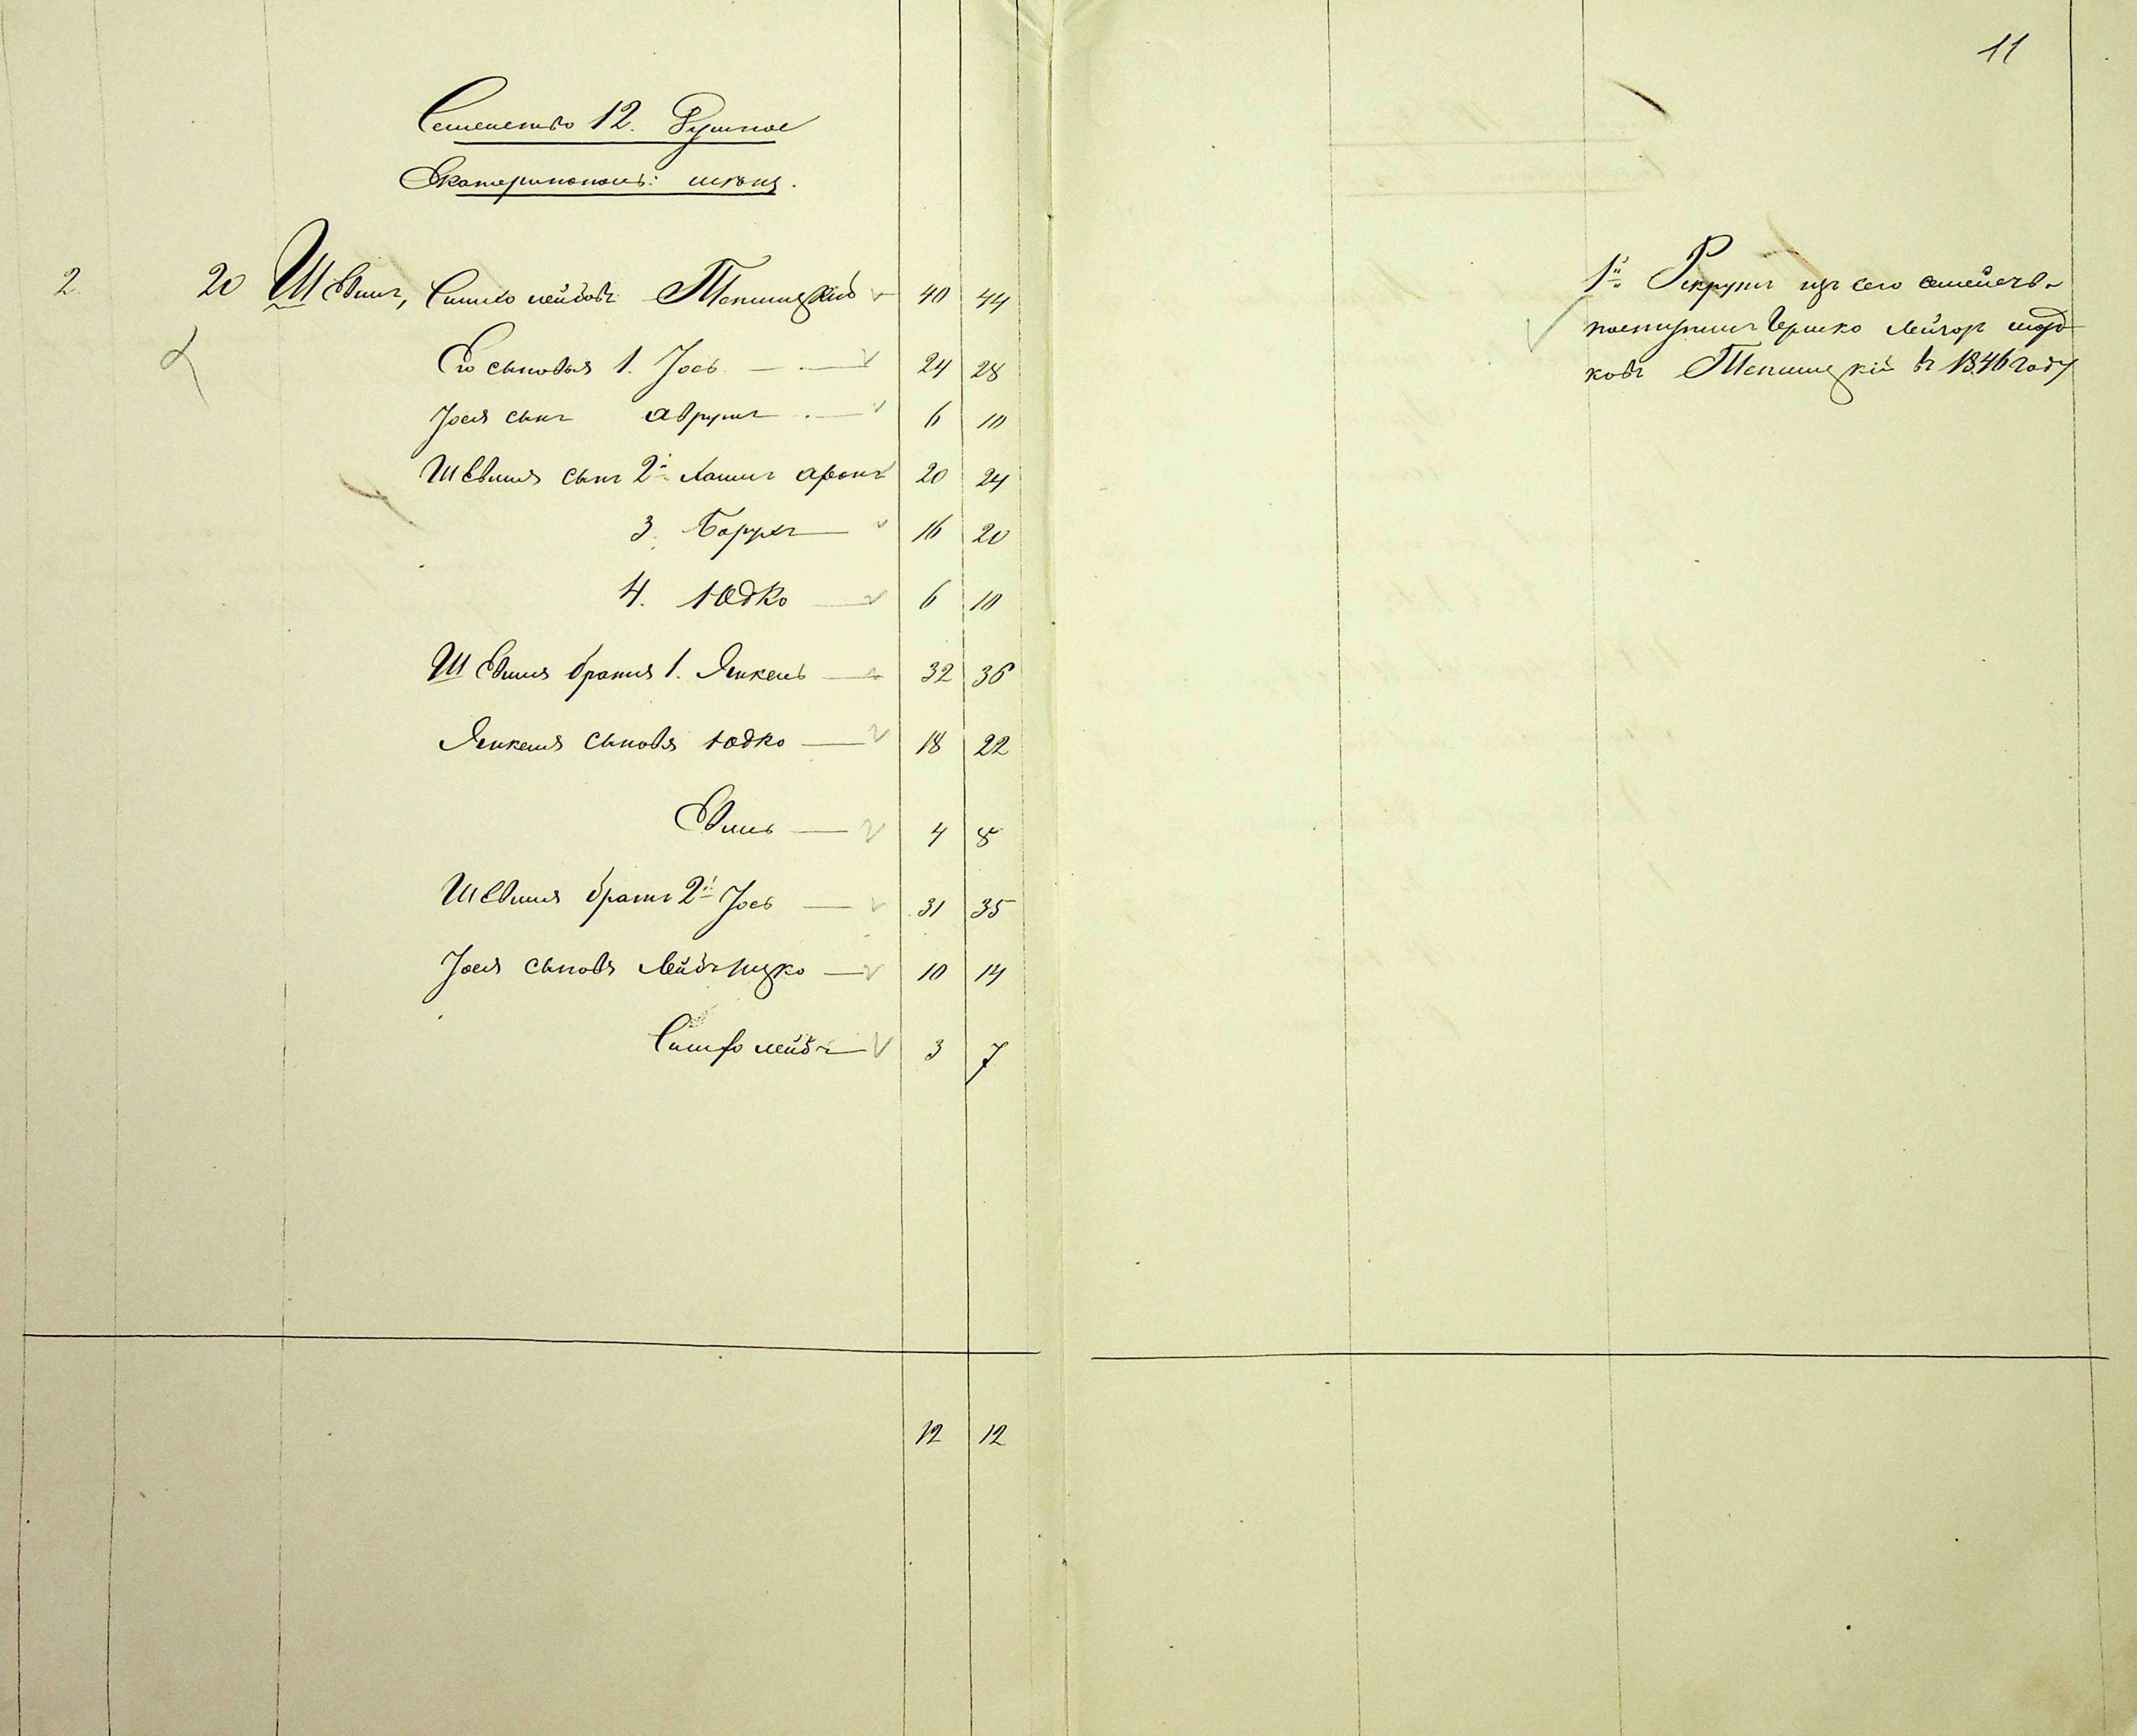 11
Семейство 12. Душное
Екатеринополь:
2. 20 Шевшил, Симхо лейбовъ Теплицкій 40 44
Его сыновья 1. Іось 24 28
Іося сынъ Аврумъ 6 10
Шевшиля сынъ 2й Хаимъ аронъ 20 24
3. Борухъ 16 20
4. Юдко 6 10
Шевшиля братья 1. Янкель 32 36
Янкеля сыновя Юдко 18 22
4 8
Шевшиля братъ 2й Іось 31 35
Іося сыновя Лейбъ Ицко 10 14
Симхо лейбъ 3 7
12 12
1й Рекрутъ изъ сего семейства
поступилъ Гершко Лейзоръ мор
ковъ Теплицкій въ 1846 году